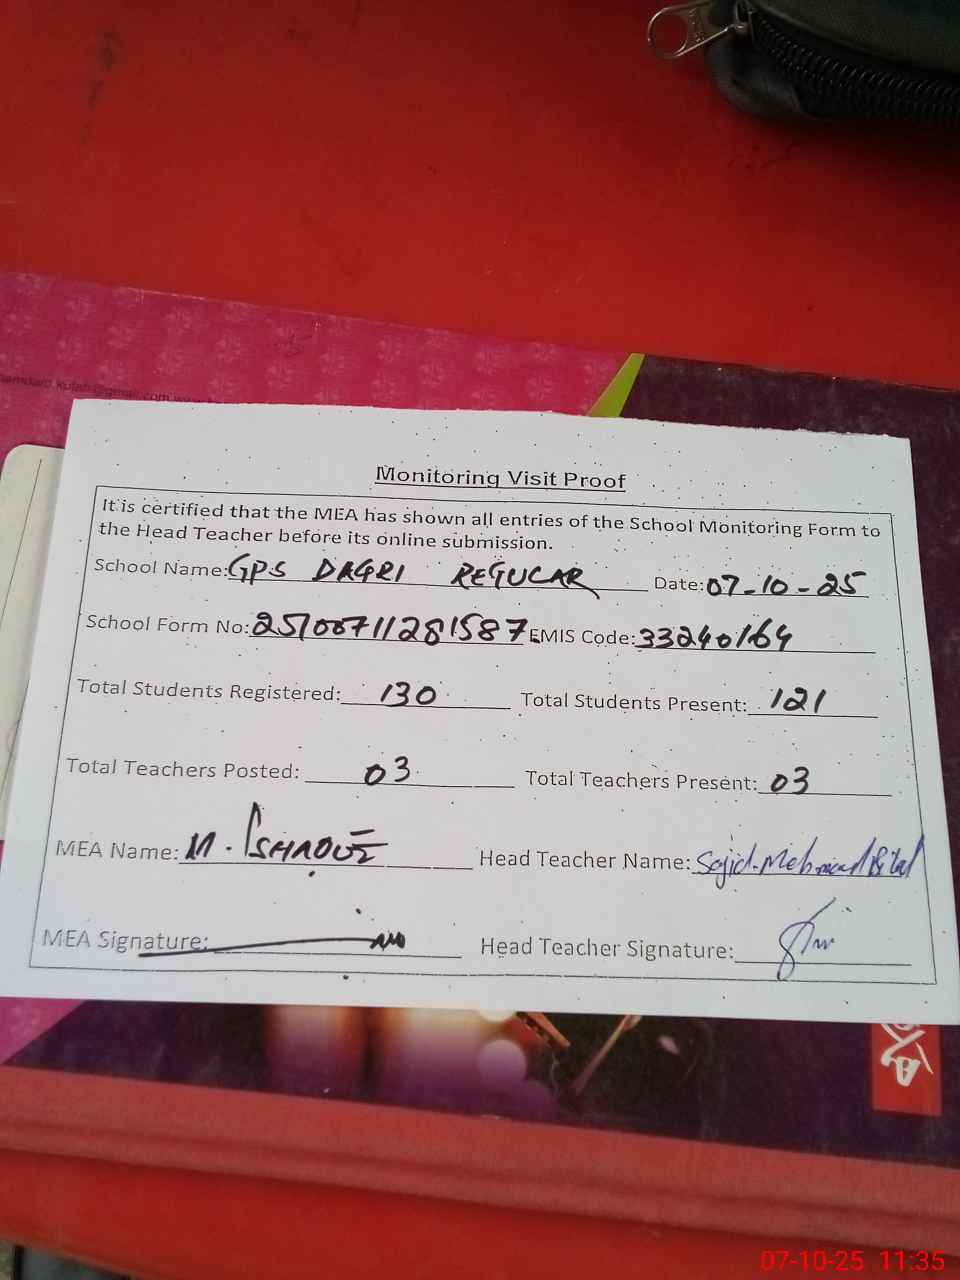 hamdard.kulab@gmail.com
Monitoring Visit Proof
It is certified that the MEA has shown all entries of the School Monitoring Form to
the Head Teacher before its online submission.
School Name: GPS DAGRI REGULAR Date: 07-10-25
School Form No: 2510071128 1587 EMIS Code: 33240164
Total Students Registered: 130 Total Students Present: 121
Total Teachers Posted: 03 Total Teachers Present: 03
MEA Name: M. ISHAQUE Head Teacher Name: Sajid Mehmood
MEA Signature: Head Teacher Signature:
07-10-25 11:35